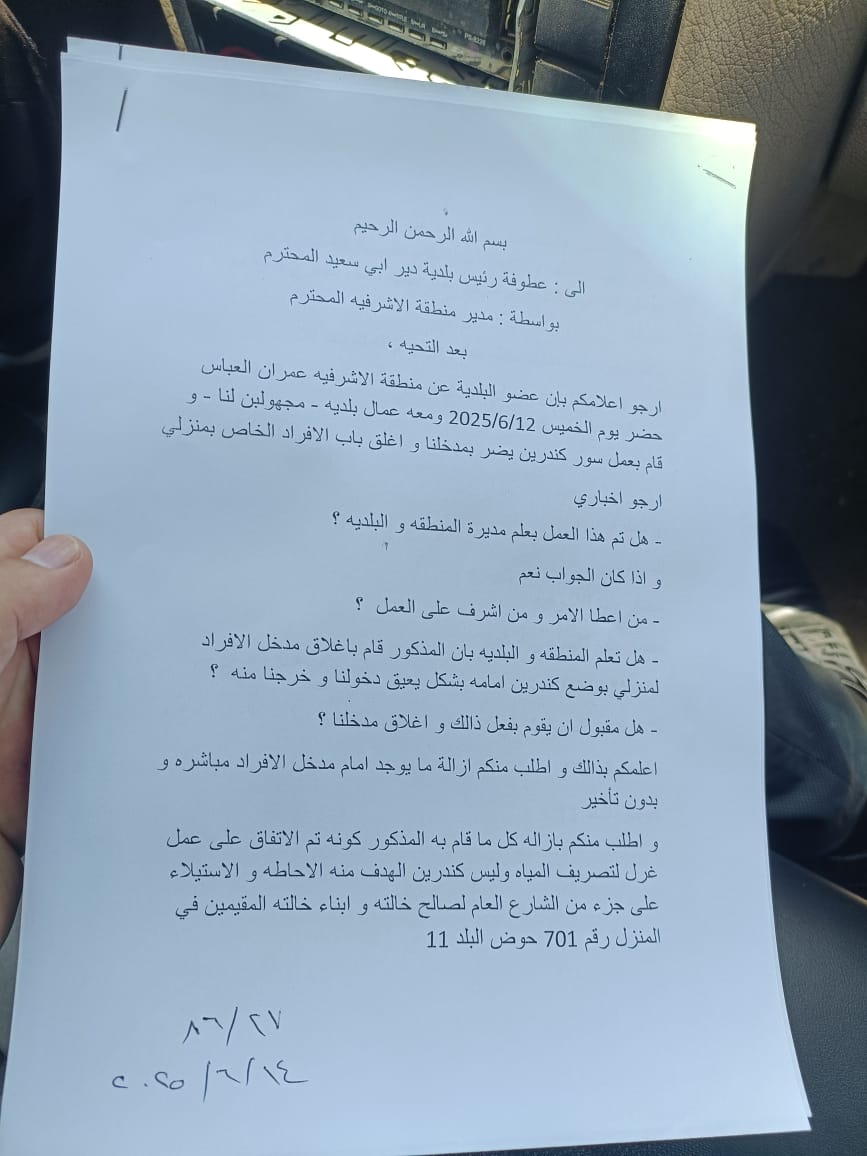 بسم الله الرحمن الرحيم
الى : عطوفة رئيس بلدية دير ابي سعيد المحترم
بواسطة : مدير منطقة الاشرفيه المحترم
بعد التحيه ،
ارجو اعلامكم بإن عضو البلدية عن منطقة الاشرفيه عمران العباس
حضر يوم الخميس 2025/6/12 ومعه عمال بلديه - مجهولبن لنا - و
قام بعمل سور كندرين يضر بمدخلنا و اغلق باب الافراد الخاص بمنزلي
ارجو اخباري
- هل تم هذا العمل بعلم مديرة المنطقه و البلديه ؟
و اذا كان الجواب نعم
- من اعطا الامر و من اشرف على العمل ؟
- هل تعلم المنطقه و البلديه بان المذكور قام باغلاق مدخل الافراد
لمنزلي بوضع كندرين امامه بشكل يعيق دخولنا و خرجنا منه ؟
- هل مقبول ان يقوم بفعل ذالك و اغلاق مدخلنا ؟
اعلمكم بذالك و اطلب منكم ازالة ما يوجد امام مدخل الافراد مباشره و
بدون تأخير
و اطلب منكم بازاله كل ما قام به المذكور كونه تم الاتفاق على عمل
غرل لتصريف المياه وليس كندرين الهدف منه الاحاطه و الاستيلاء
على جزء من الشارع العام لصالح خالته و ابناء خالته المقيمين في
المنزل رقم 701 حوض البلد 11
٨٦/٢٧
٢٠٢٥/٦/١٤